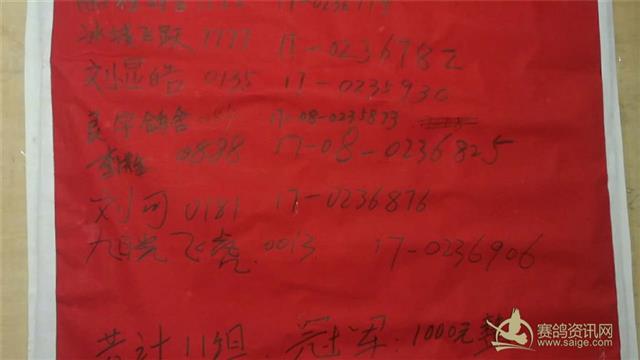 冰城飞跃 7777 17-0236782
刘显皓 0135 17-0235930
17-08-0235873
0898 17-08-0236825
刘可 0181 17-0236876
九日光飞虎 0013 17-0236906
共计11组 冠军. 1000元整
赛鸽资讯网
www.saige.com